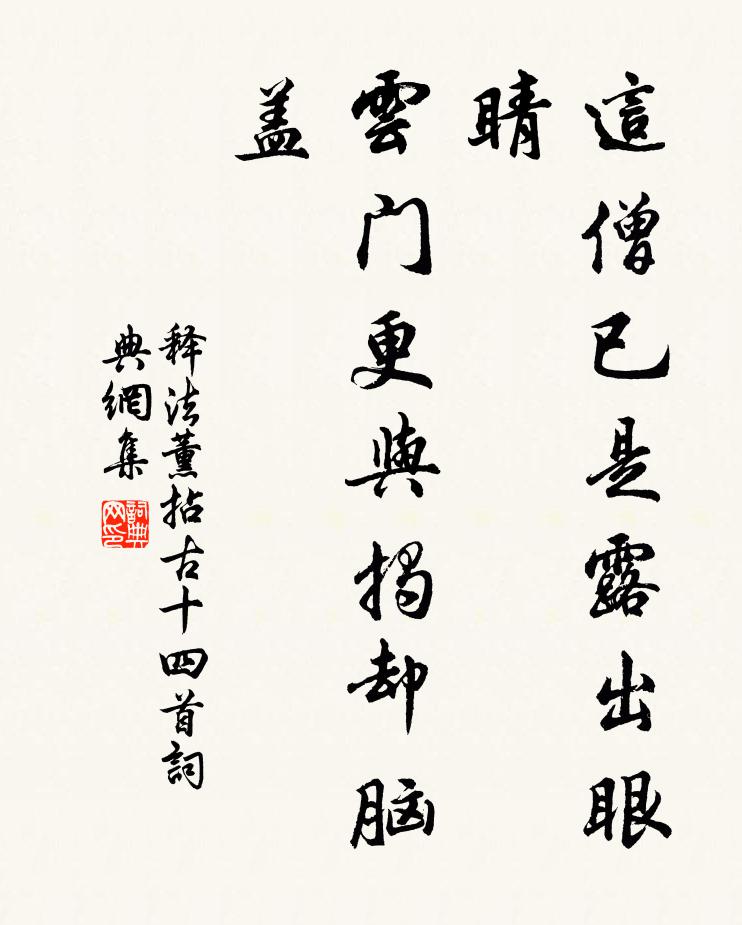 這僧已是露出眼
睛
雲门更與揭却脑
盖
释法薰拈古十四首詞
典網集
詞典
网印